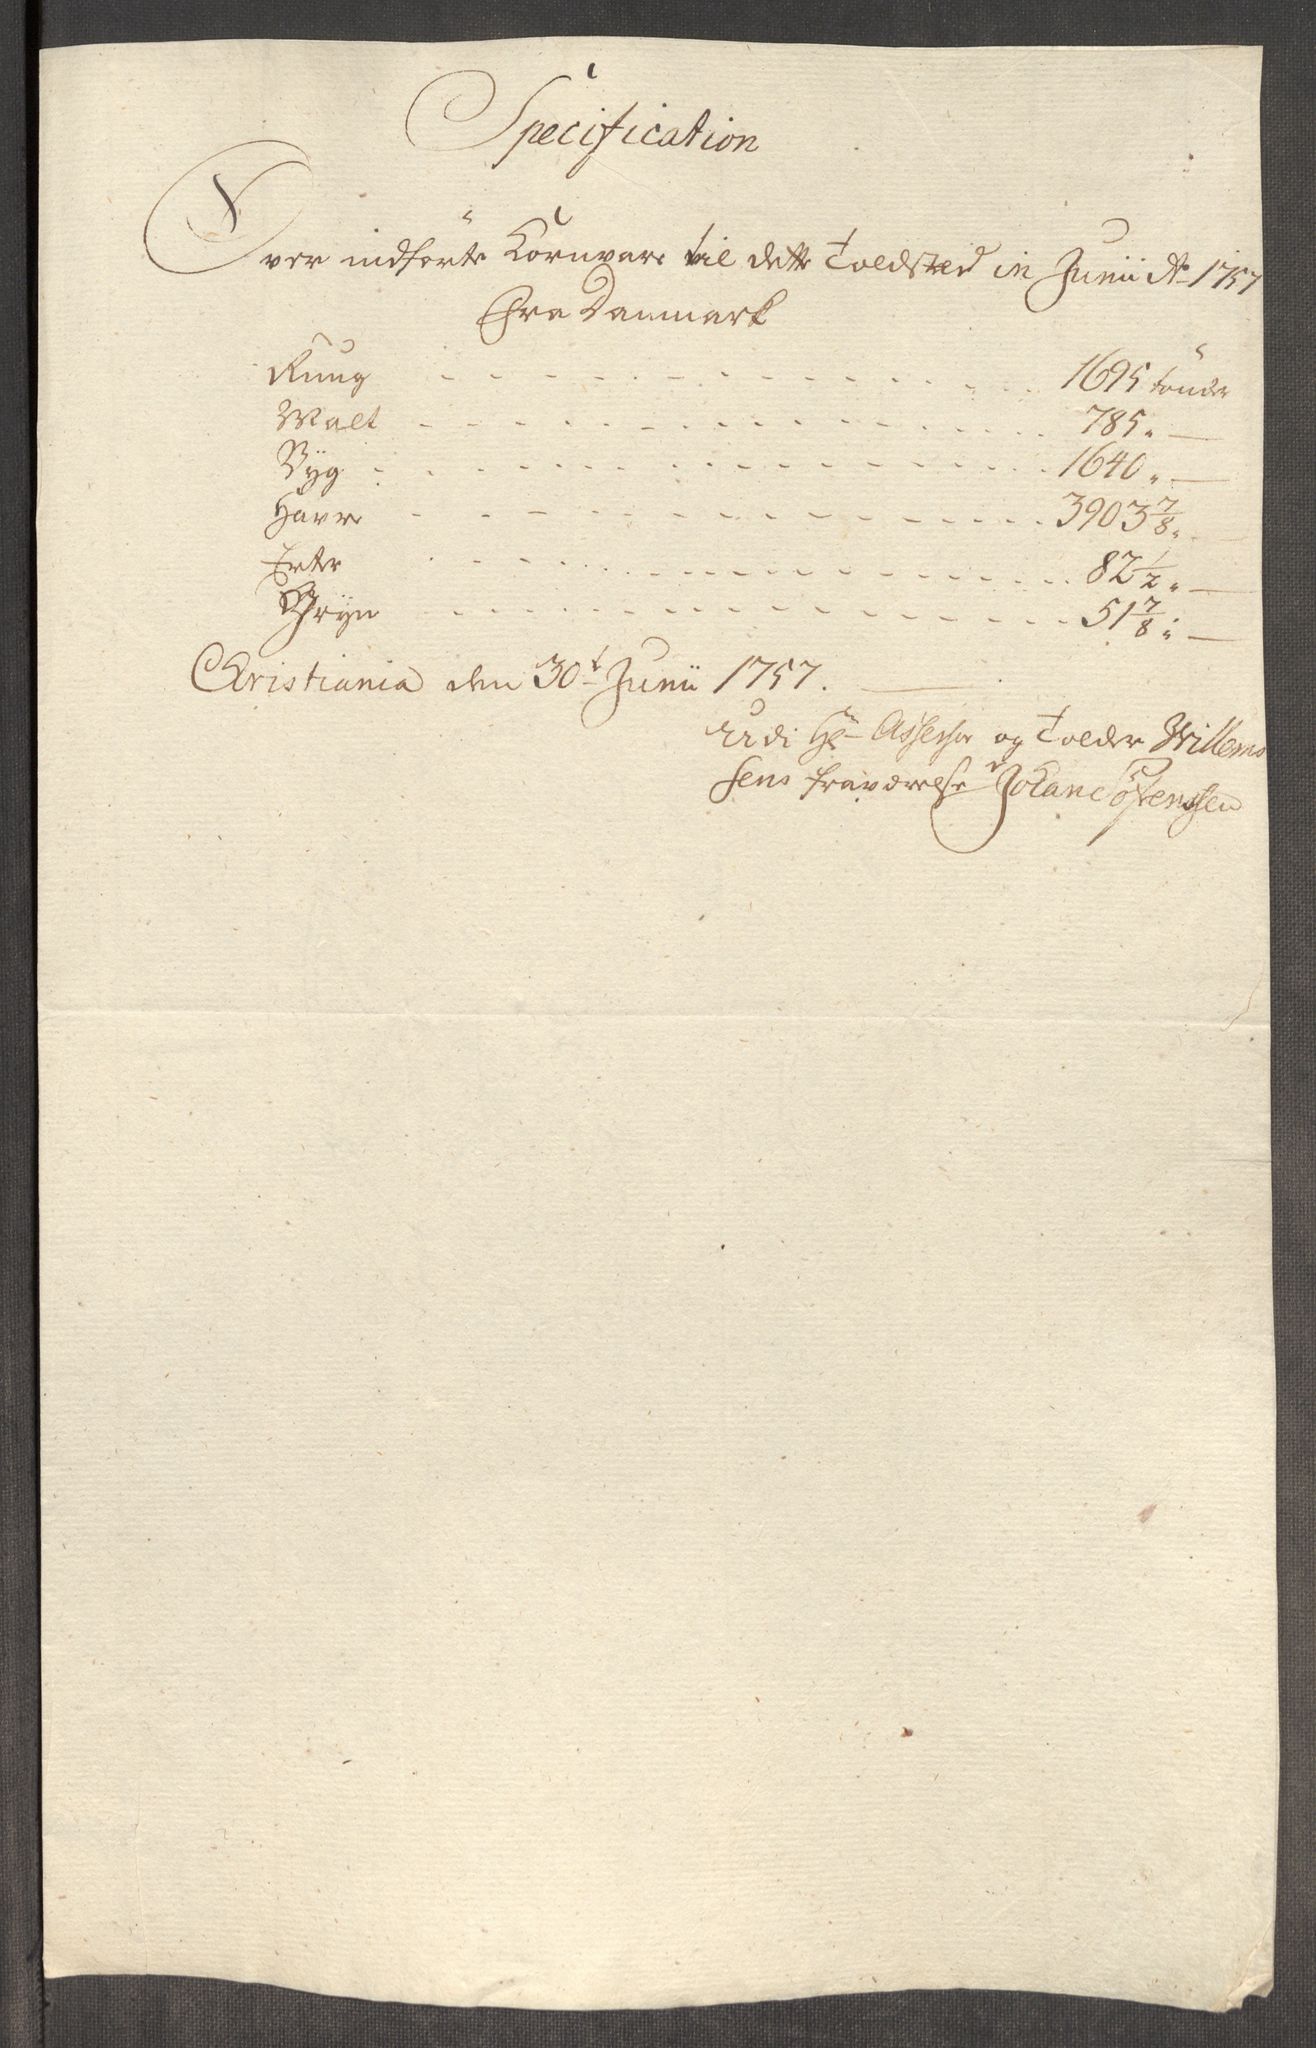 Specification
Over indførte Kornvare til dette Toldsted in Junii Ao 1757
Fra Danmark
Rung 1695 tönder
Malt 785 " —
Byg 1640 " —
Havre 3903 7/8 " —
Erter 82 1/2 " —
Gryn 51 7/8 " —
Christiania den 30t Junii 1757.
Udi Hr Assessor og Tolder Willems
sens fraværelse Johan Sörenssen